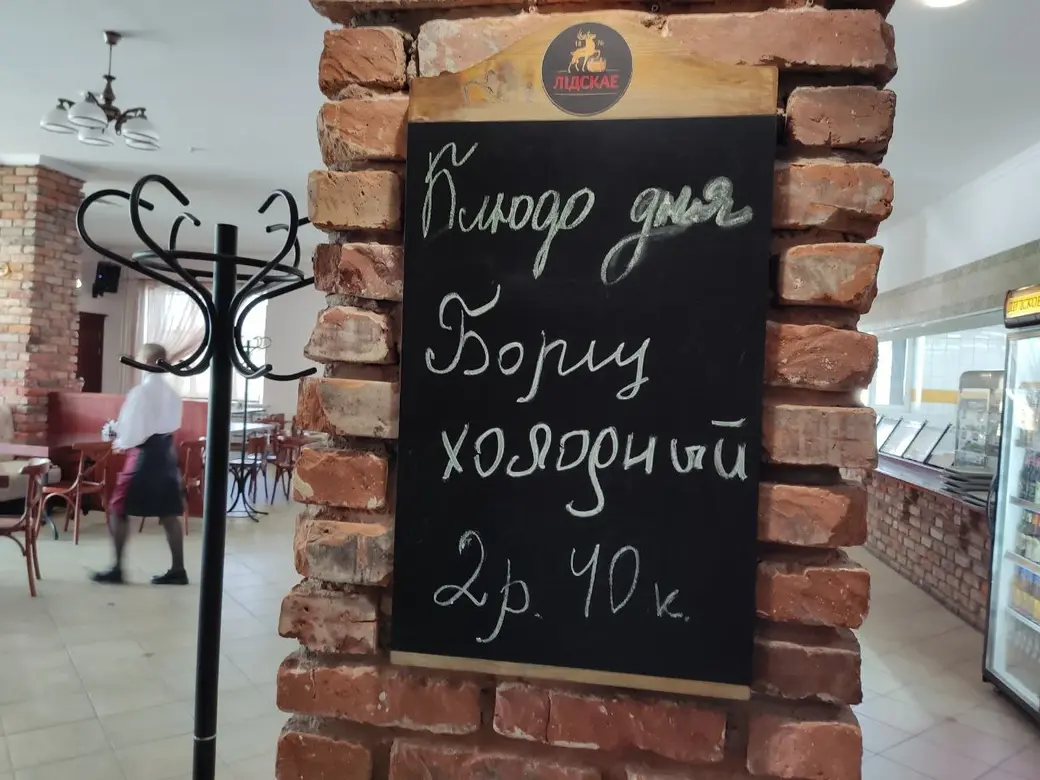 18 76
ЛІДСКАЕ
Блюдо дня
Борщ
холодный
2р. 40 к.